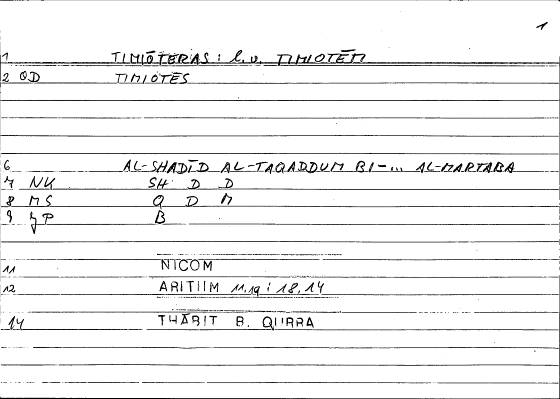 1
1 TIMIŌTERAS : l.v. TIMIOTĒTI
2 QD TIMIOTĒS
6 AL-SHADĪD AL-TAQADDUM BI-... AL-MARTABA
7 NK SH D D
8 MS Q D M
9 JP B
11 NICOM
12 ARITIIM 11.19 : 18,14
14 THĀBIT B. QURRA